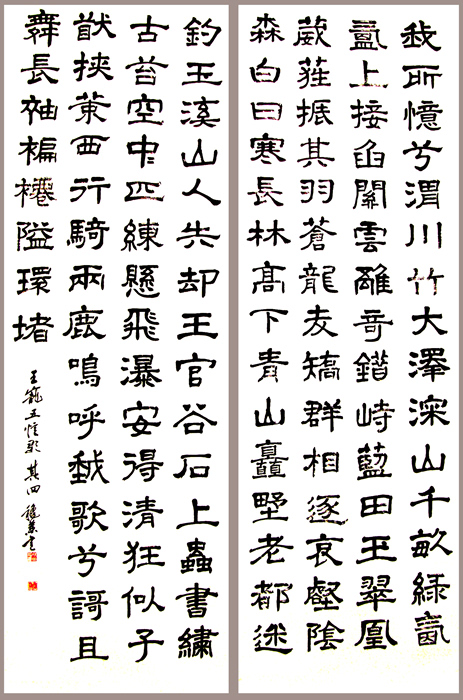 我所憶兮渭川竹大澤深山千畝綠
上接函關雲離奇錯峙藍田玉翠凰
葳蕤振其羽蒼龍夭矯群相逐哀壑陰
森白日寒長林高下青山矗野老都迷
釣玉溪山人失却王官谷石上蟲書繡
古苔空中匹練懸飛瀑安得清狂似子
猷挾策西行騎兩鹿嗚呼歌兮謌且
舞長袖褊褼隘環堵
王寵五憶歌其四